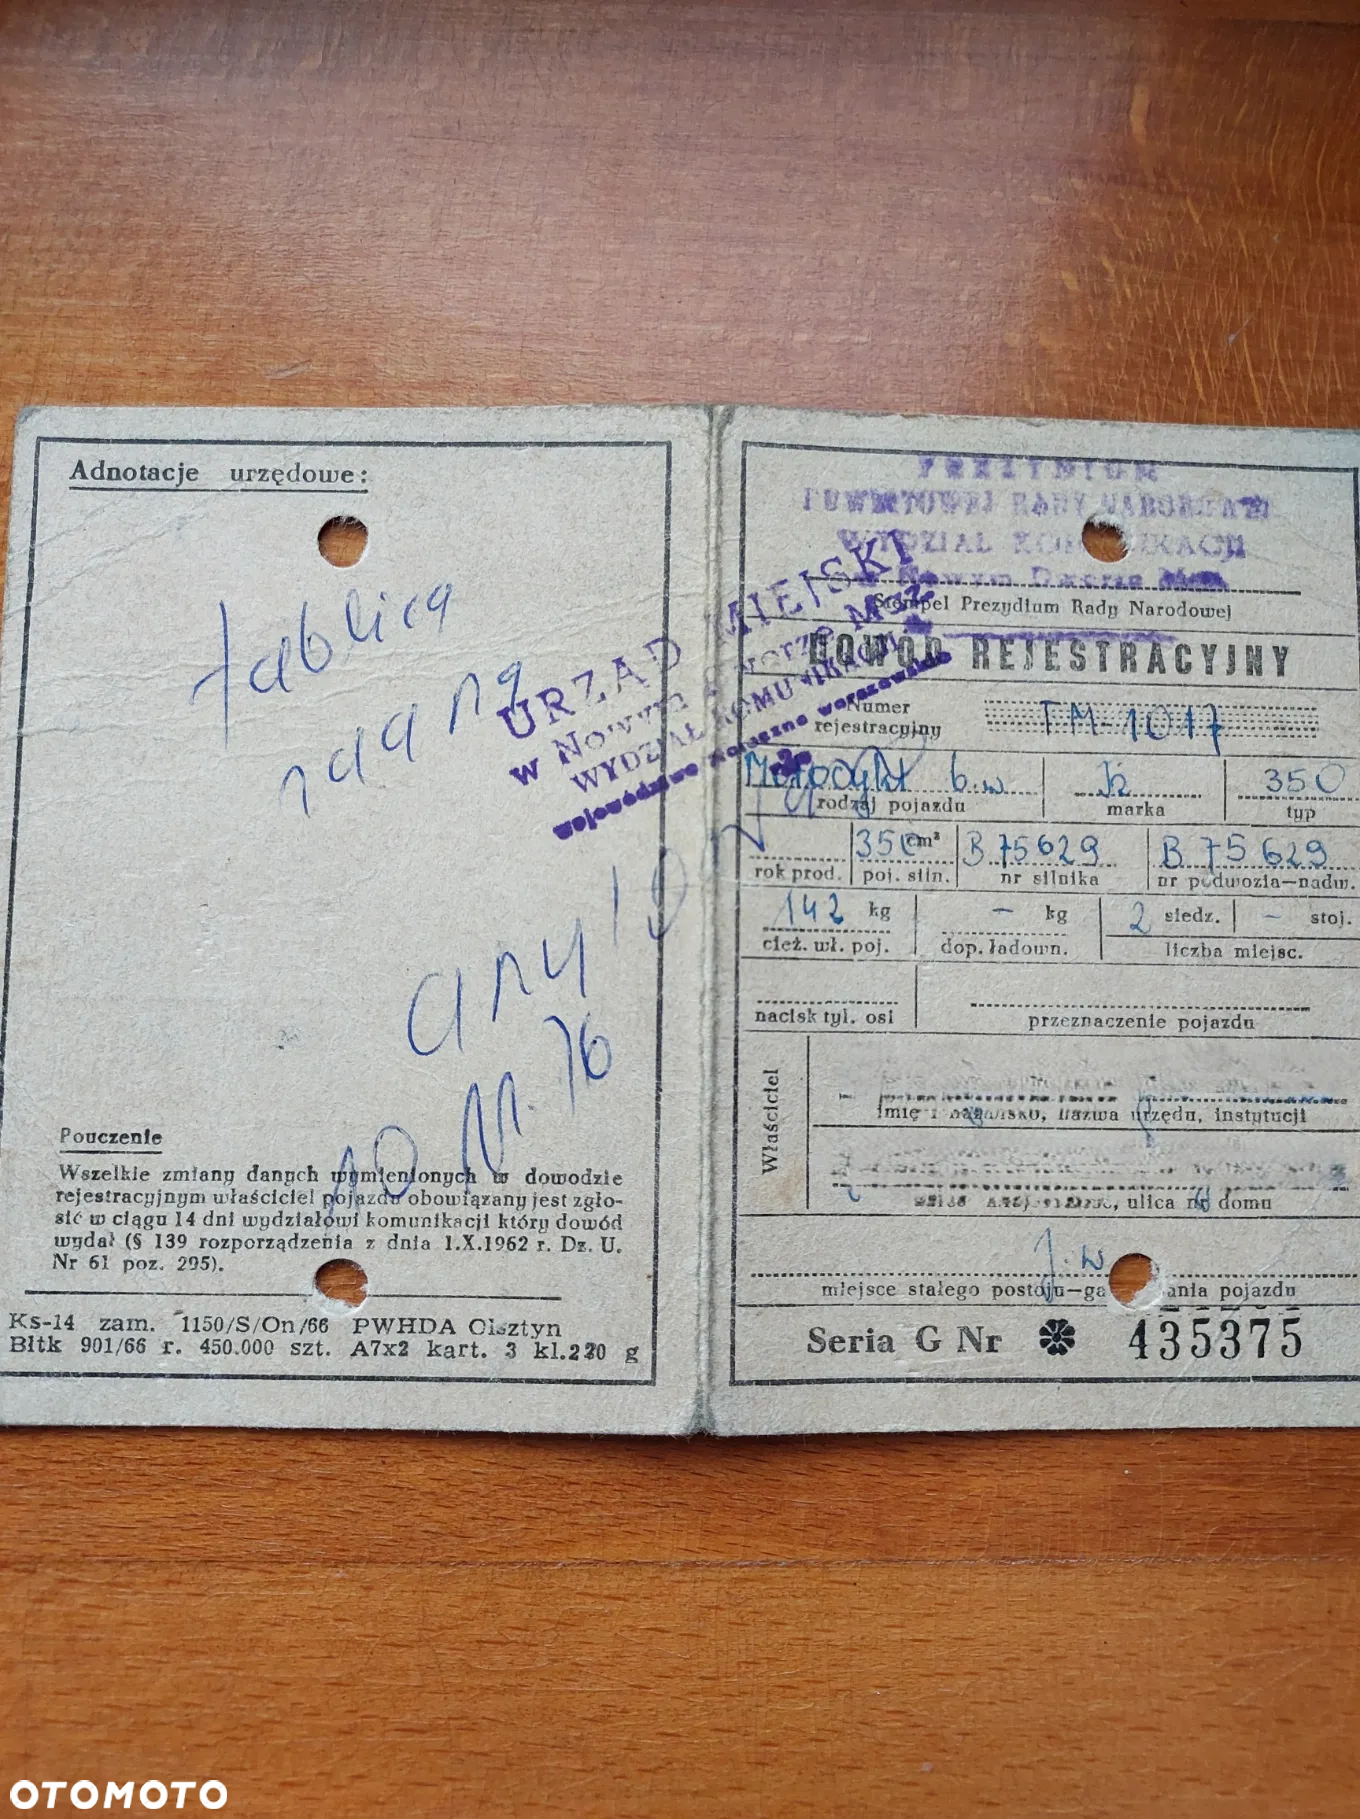 Adnotacje urzędowe:
tablica
URZĄD MIEJSKI
w Nowym Dworze Maz.
WYDZIAŁ KOMUNIKACJI
województwo stołeczne warszawskie
10.11.76
Pouczenie
Wszelkie zmiany danych wymienionych w dowodzie
rejestracyjnym właściciel pojazdu obowiązany jest zgło-
sić w ciągu 14 dni wydziałowi komunikacji który dowód
wydał (§ 139 rozporządzenia z dnia 1.X.1962 r. Dz. U.
Nr 61 poz. 295).
Ks-14 zam. 1150/S/On/66 PWHDA Olsztyn
Bltk 901/66 r. 450.000 szt. A7x2 kart. 3 kl.220 g
PREZYDIUM
POWIATOWEJ RADY NARODOWEJ
WYDZIAŁ KOMUNIKACJI
w Nowym Dworze Maz.
Stempel Prezydium Rady Narodowej
DOWÓD REJESTRACYJNY
Numer
rejestracyjny TM-1017
Motocykl b.w Iż 350
rodzaj pojazdu marka typ
350 cm³ B 75629 B 75629
rok prod. poj. siln. nr silnika nr podwozia—nadw.
142 kg – kg 2 siedz. – stoj.
cież. wł. poj. dop. ładown. liczba miejsc.
nacisk tyl. osi przeznaczenie pojazdu
Właściciel
imię i nazwisko, nazwa urzędu, instytucji
ulica nr domu
J.w
miejsce stałego postoju—garażowania pojazdu
Seria G Nr 435375
OTOMOTO